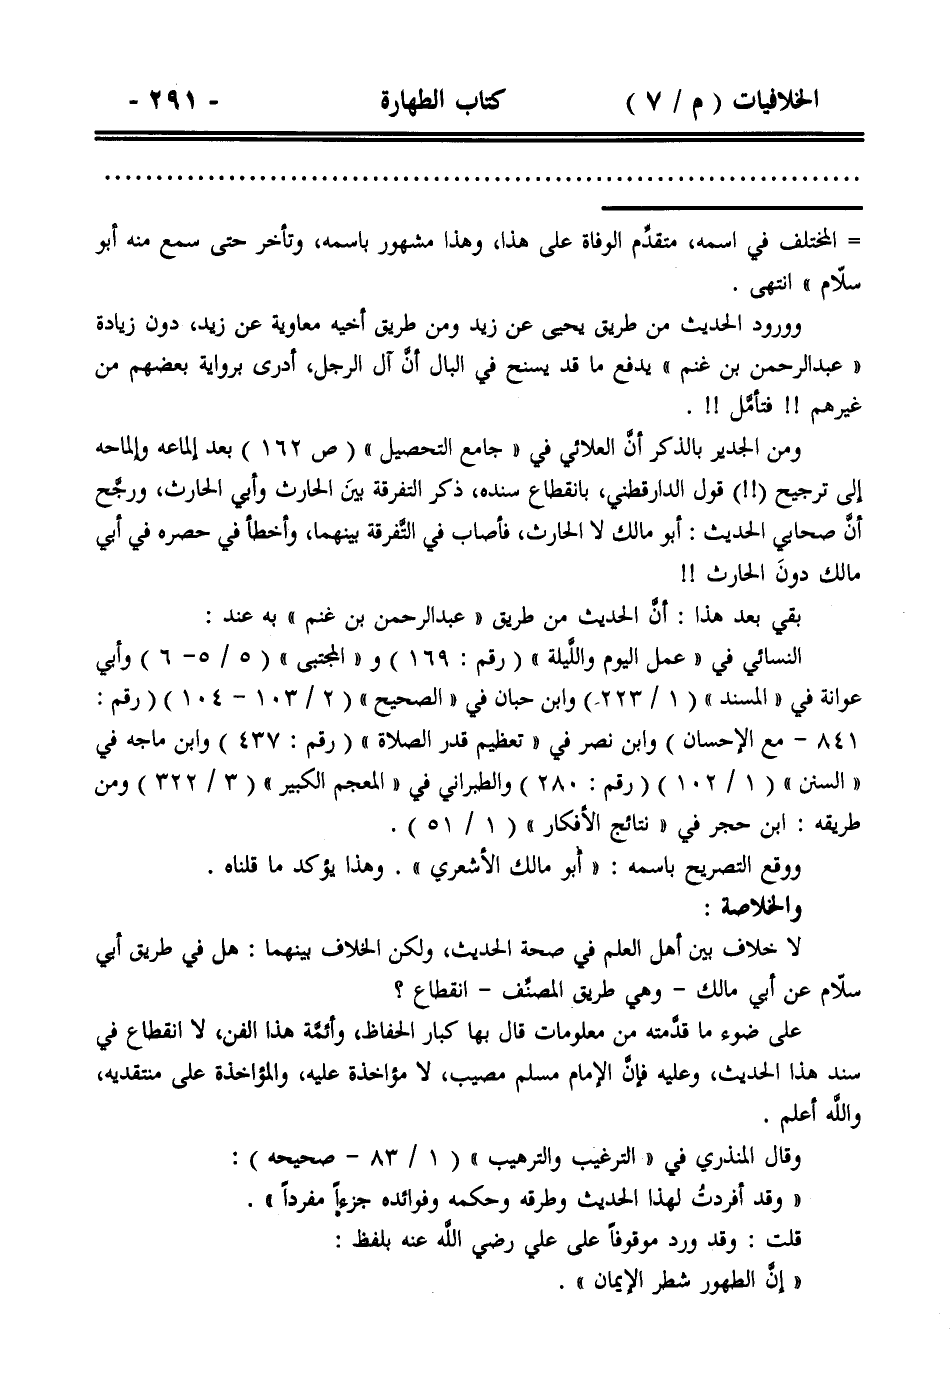 الخلافيات ( م / ٧ ) كتاب الطهارة - ٢٩١ -
= المختلف في اسمه، متقدِّم الوفاة على هذا، وهذا مشهور باسمه، وتأخر حتى سمع منه أبو
سلّام » انتهى .
وورود الحديث من طريق يحيى عن زيد ومن طريق أخيه معاوية عن زيد، دون زيادة
« عبدالرحمن بن غنم » يدفع ما قد يسنح في البال أنَّ آل الرجل، أدرى برواية بعضهم من
غيرهم !! فتأمَّل !! .
ومن الجدير بالذكر أنَّ العلائي في « جامع التحصيل » ( ص ١٦٢ ) بعد إلماعه وإلماحه
إلى ترجيح (!!) قول الدارقطني، بانقطاع سنده، ذكر التفرقة بينَ الحارث وأبي الحارث، ورجَّح
أنَّ صحابي الحديث : أبو مالك لا الحارث، فأصاب في التَّفرقة بينهما، وأخطأ في حصره في أبي
مالك دونَ الحارث !!
بقي بعد هذا : أنَّ الحديث من طريق « عبدالرحمن بن غنم » به عند :
النسائي في « عمل اليوم واللَّيلة » ( رقم : ١٦٩ ) و « المجتبى » ( ٥ / ٥- ٦ ) وأبي
عوانة في « المسند » ( ١ / ٢٢٣ ) وابن حبان في « الصحيح » ( ٢ / ١٠٣ - ١٠٤ ) ( رقم :
٨٤١ - مع الإحسان ) وابن نصر في « تعظيم قدر الصلاة » ( رقم : ٤٣٧ ) وابن ماجه في
« السنن » ( ١ / ١٠٢ ) ( رقم : ٢٨٠ ) والطبراني في « المعجم الكبير » ( ٣ / ٣٢٢ ) ومن
طريقه : ابن حجر في « نتائج الأفكار » ( ١ / ٥١ ) .
ووقع التصريح باسمه : « أبو مالك الأشعري » . وهذا يؤكد ما قلناه .
والخلاصة :
لا خلاف بين أهل العلم في صحة الحديث، ولكن الخلاف بينهما : هل في طريق أبي
سلّام عن أبي مالك - وهي طريق المصنِّف - انقطاع ؟
على ضوء ما قدَّمته من معلومات قال بها كبار الحفاظ، وأئمَّة هذا الفن، لا انقطاع في
سند هذا الحديث، وعليه فإنَّ الإمام مسلم مصيب، لا مؤاخذة عليه، والمؤاخذة على منتقديه،
واللَّه أعلم .
وقال المنذري في « الترغيب والترهيب » ( ١ / ٨٣ - صحيحه ) :
« وقد أفردتُ لهذا الحديث وطرقه وحكمه وفوائده جزءاً مفرداً » .
قلت : وقد ورد موقوفاً على علي رضي اللَّه عنه بلفظ :
« إنَّ الطهور شطر الإيمان » .